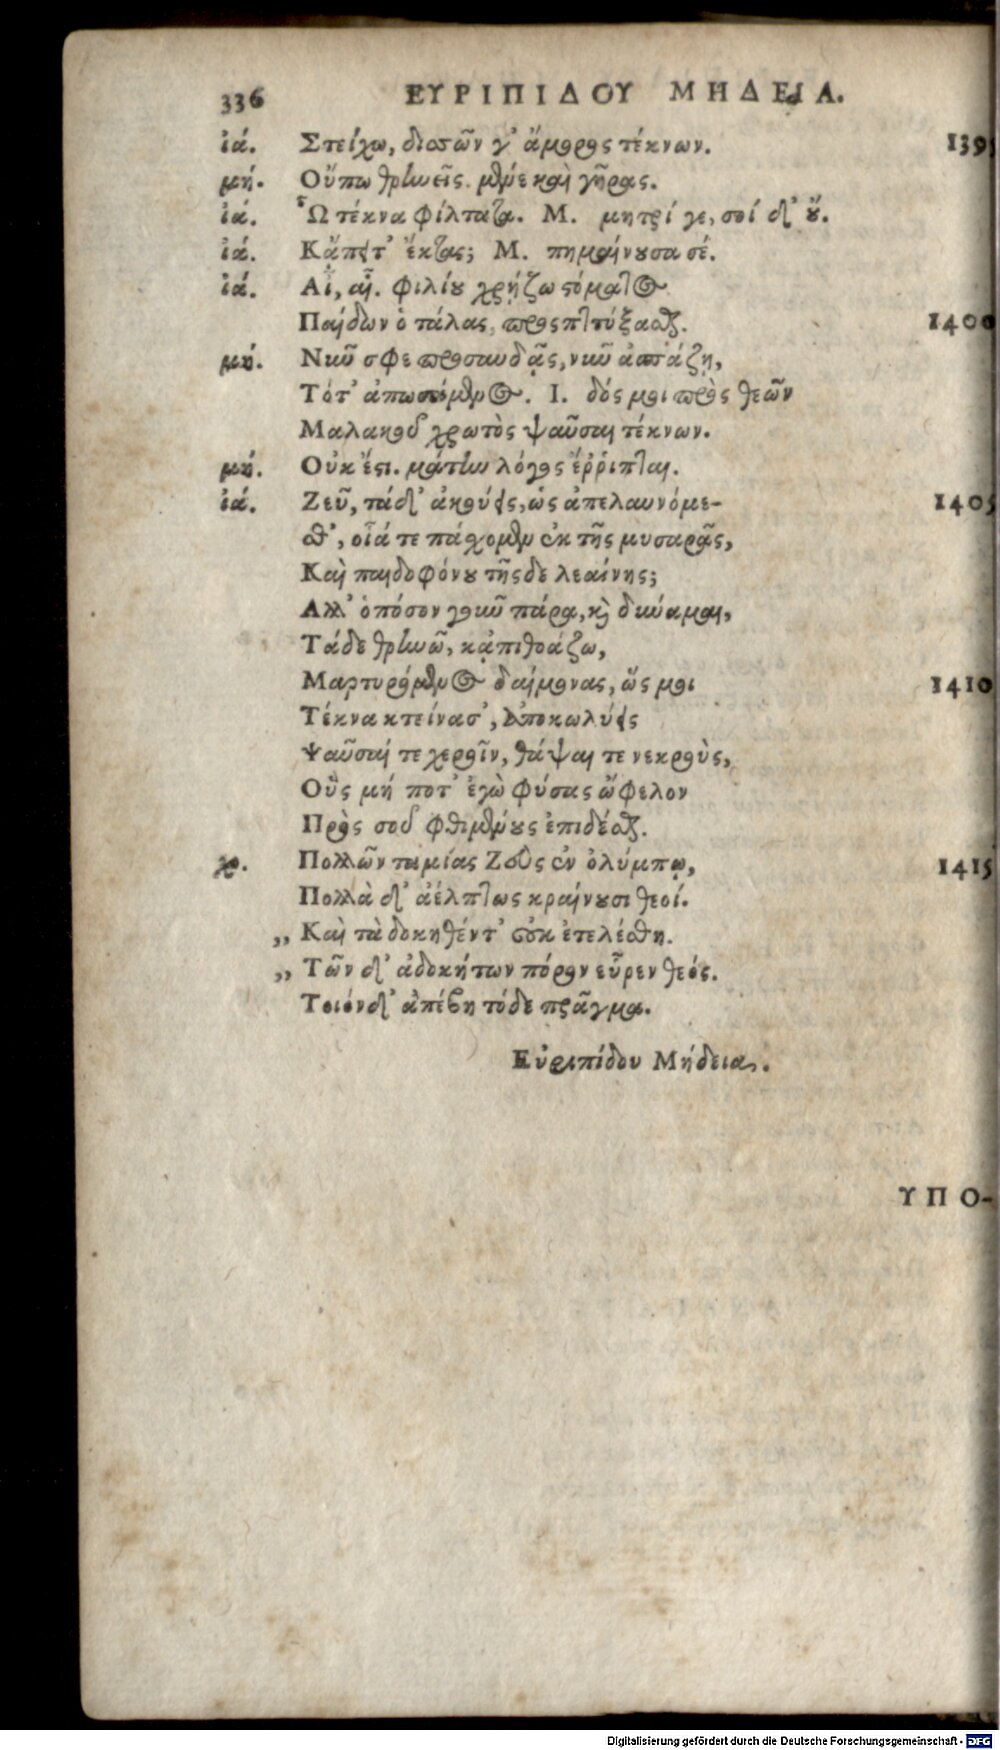 336 ΕΥΡΙΠΙΔΟΥ ΜΗΔΕΙΑ.
ἰά. Στείχω, δισσῶν γ' ἄμορος τέκνων. 1395
μή. Οὔπω θρηνεῖς. μένε καὶ γῆρας.
ἰά. Ὦ τέκνα φίλτατα. Μ. μητρί γε, σοί δ' οὔ.
ἰά. Κἄπειτ' ἔκτας; Μ. πημαίνουσα σέ.
ἰά. Αἲ, αἴ. φιλίου χρῄζω στόματος
Παίδων ὁ τάλας, προσπτύξασθαι. 1400
μή. Νῦν σφε προσαυδᾷς, νῦν ἀσπάζῃ,
Τότ' ἀπωσάμενος. Ι. δός μοι πρὸς θεῶν
Μαλακοῦ χρωτὸς ψαῦσαι τέκνων.
μή. Οὐκ ἔστι. μάτην λόγος ἔῤῥιπται.
ἰά. Ζεῦ, τάδ' ἀκούεις, ὡς ἀπελαυνόμε- 1405
σθ', οἷά τε πάσχομεν ἐκ τῆς μυσαρᾶς,
Καὶ παιδοφόνου τῆσδε λεαίνης;
Αλλ' ὁπόσον γοῦν πάρα, καὶ δύναμαι,
Τάδε θρηνῶ, κᾀπιθοάζω,
Μαρτυρόμενος δαίμονας, ὥς μοι 1410
Τέκνα κτείνασ', ἀποκωλύεις
Ψαῦσαί τε χεροῖν, θάψαι τε νεκροὺς,
Οὓς μή ποτ' ἐγὼ φύσας ὤφελον
Πρὸς σοῦ φθιμένους ἐπιδέσθαι.
χο. Πολλῶν ταμίας Ζεὺς ἐν ὀλύμπῳ, 1415
Πολλὰ δ' ἀέλπτως κραίνουσι θεοί.
,, Καὶ τὰ δοκηθέντ' οὐκ ἐτελέσθη.
,, Τῶν δ' ἀδοκήτων πόρον εὗρεν θεός.
Τοιόνδ' ἀπέβη τόδε πρᾶγμα.
Εὐριπίδου Μήδεια.
ΥΠΟ-
Digitalisierung gefördert durch die Deutsche Forschungsgemeinschaft - DFG